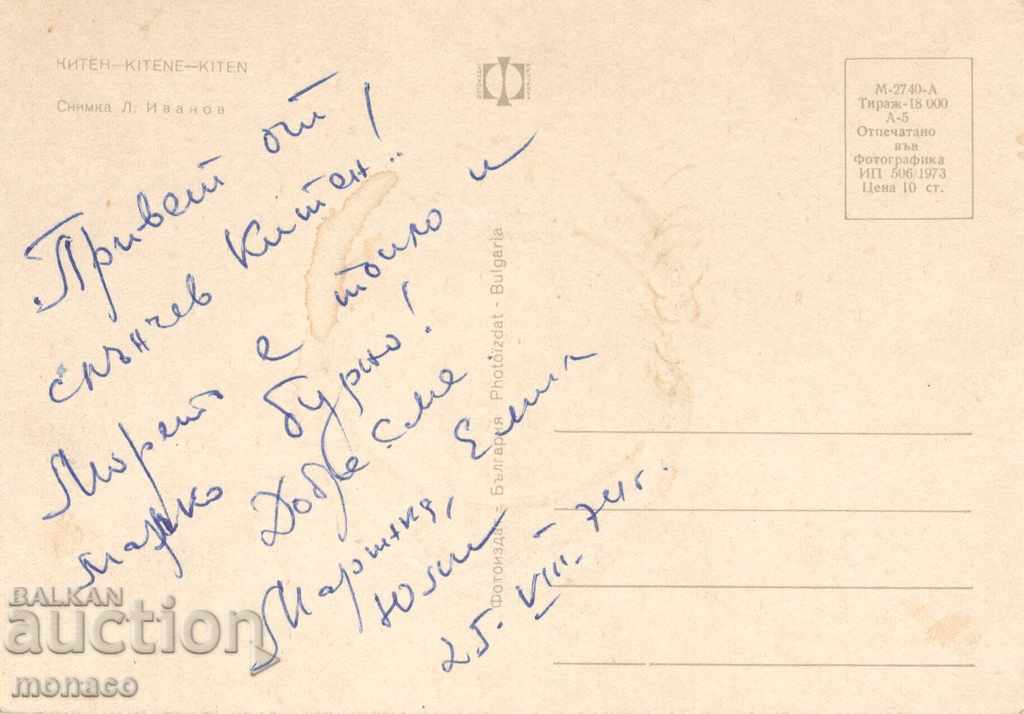 КИТЕН—KITENE—KITEN
Снимка Л. Иванов
М-2740-А
Тираж-18 000
А-5
Отпечатано
във
Фотографика
ИП 506/1973
Цена 10 ст.
Привет от
слънчев Китен..!
Морето е топло и
малко бурно!
Добре сме.
Мартина, Емил
Юлия
25. VIII. 74 г.
Фотоиздат - България Photoizdat - Bulgaria
BALKAN
auction
monaco